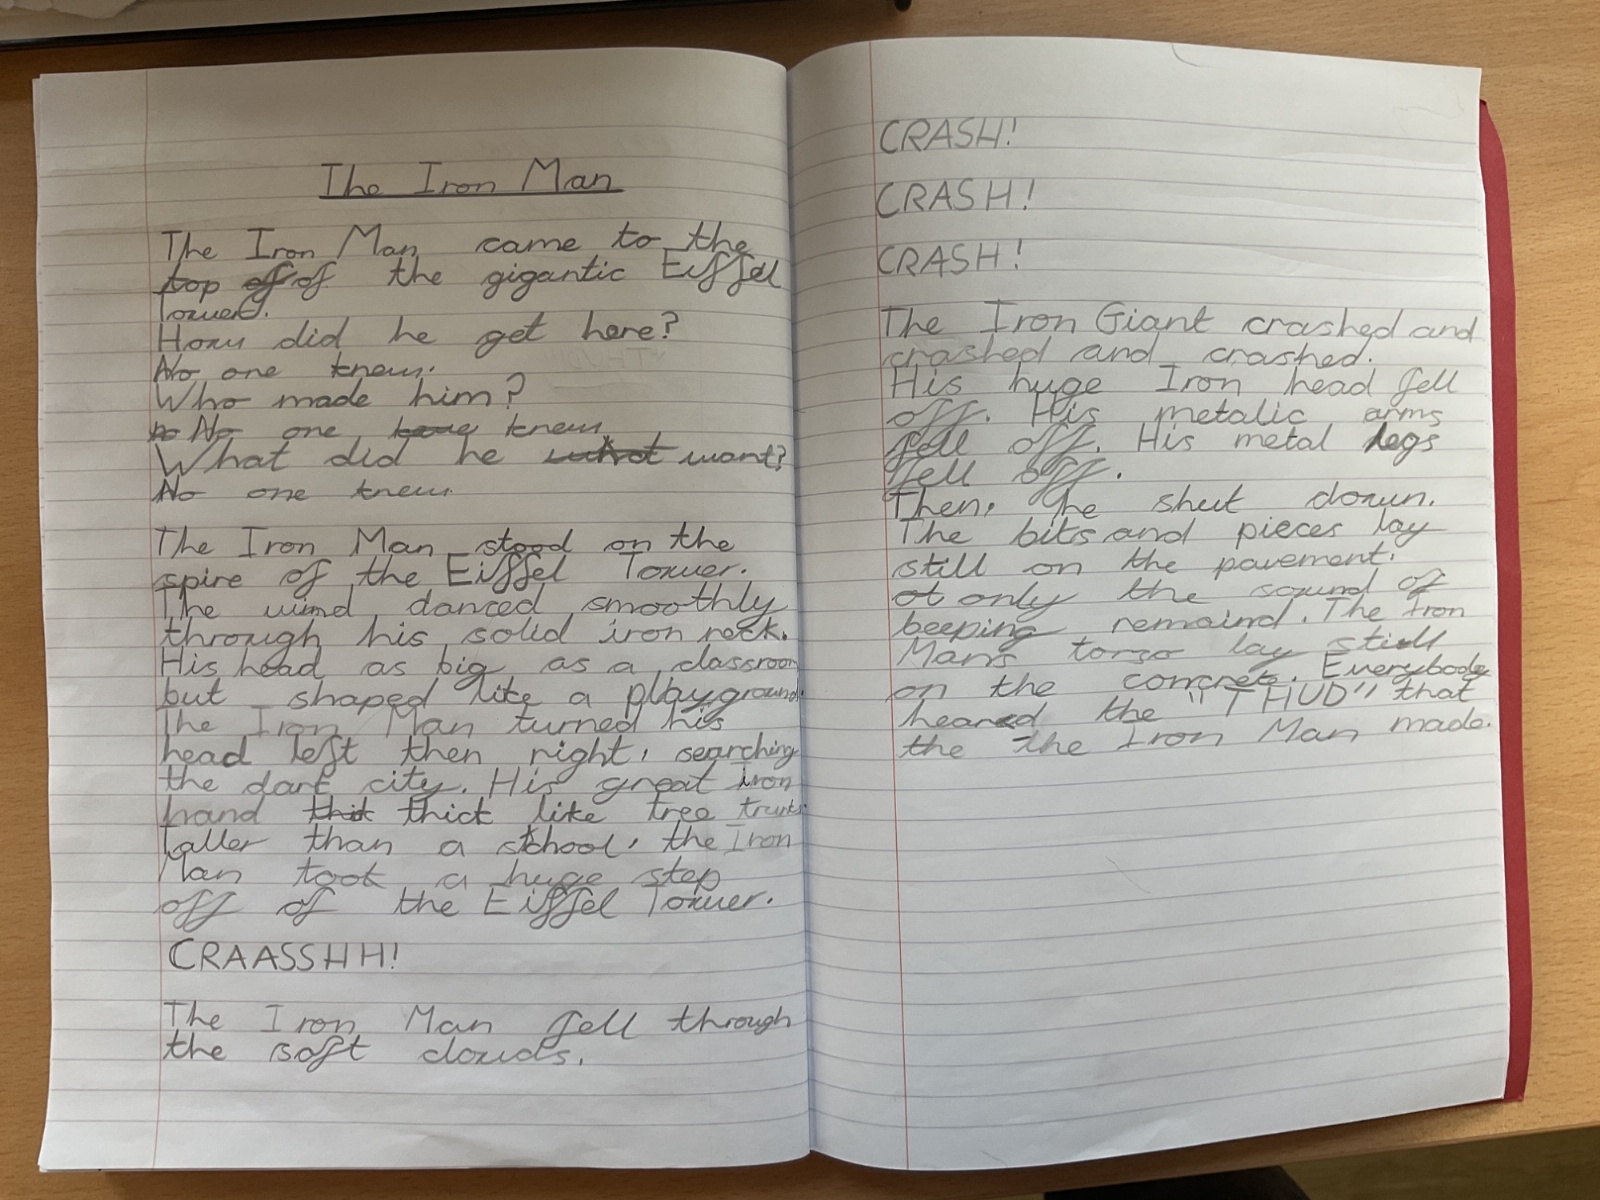 The Iron Man
The Iron Man came to the
top of of the gigantic Eiffel
Tower.
How did he get here?
No one knew.
Who made him?
no No one knew
What did he what want?
No one knew.
The Iron Man stood on the
spire of the Eiffel Tower.
The wind danced smoothly
through his solid iron neck.
His head as big as a classroom
but shaped like a playground.
The Iron Man turned his
head left then right, searching
the dark city. His great iron
hand thik thick like tree trunks
taller than a school, the Iron
Man took a huge step
off of the Eiffel Tower.
CRAASSHH!
The Iron Man fell through
the soft clouds.
CRASH!
CRASH!
CRASH!
The Iron Giant crashed and
crashed and crashed.
His huge Iron head fell
off. His metalic arms
fell off. His metal legs
fell off.
Then, he shut down.
The bits and pieces lay
still on the pavement.
ot only the sound of
beeping remaind. The Iron
Man's torso lay still
on the concrete. Everybody
heared the "THUD" that
the the Iron Man made.